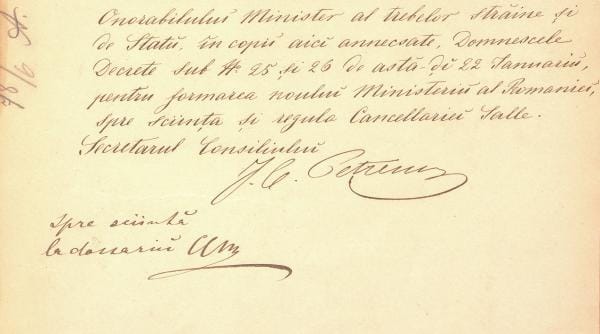 Onorabilului Minister al trebelor străine și
de Statŭ, în copii aici annecsate, Domnescele
Decrete sub № 25 și 26 de astă-dĭ 22 Ianuariŭ,
pentru formarea noului Ministeriŭ al Romaniei,
spre sciința și regula Cancellariei Salle.
Secretarul Consiliului
78/6 A.
spre sciință
la dossariŭ